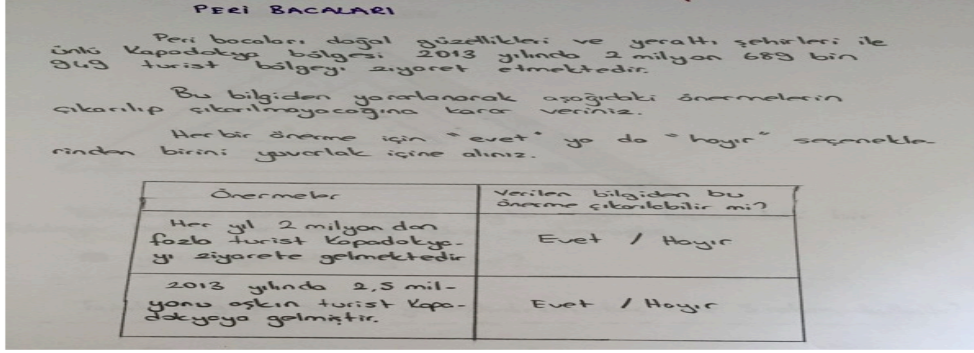 PERİ BACALARI
Peri bacaları doğal güzellikleri ve yeraltı şehirleri ile
ünlü Kapadokya bölgesi 2013 yılında 2 milyon 689 bin
949 turist bölgeyi ziyaret etmektedir.
Bu bilgiden yararlanarak aşağıdaki önermelerin
çıkarılıp çıkarılmayacağına karar veriniz.
Her bir önerme için "evet" ya da "hayır" seçenekle-
rinden birini yuvarlak içine alınız.
Önermeler
Verilen bilgiden bu
önerme çıkarılabilir mi?
Her yıl 2 milyon dan
fazla turist Kapadokya-
yı ziyarete gelmektedir
Evet / Hayır
2013 yılında 2,5 mil-
yonu aşkın turist Kapa-
dokyaya gelmiştir.
Evet / Hayır